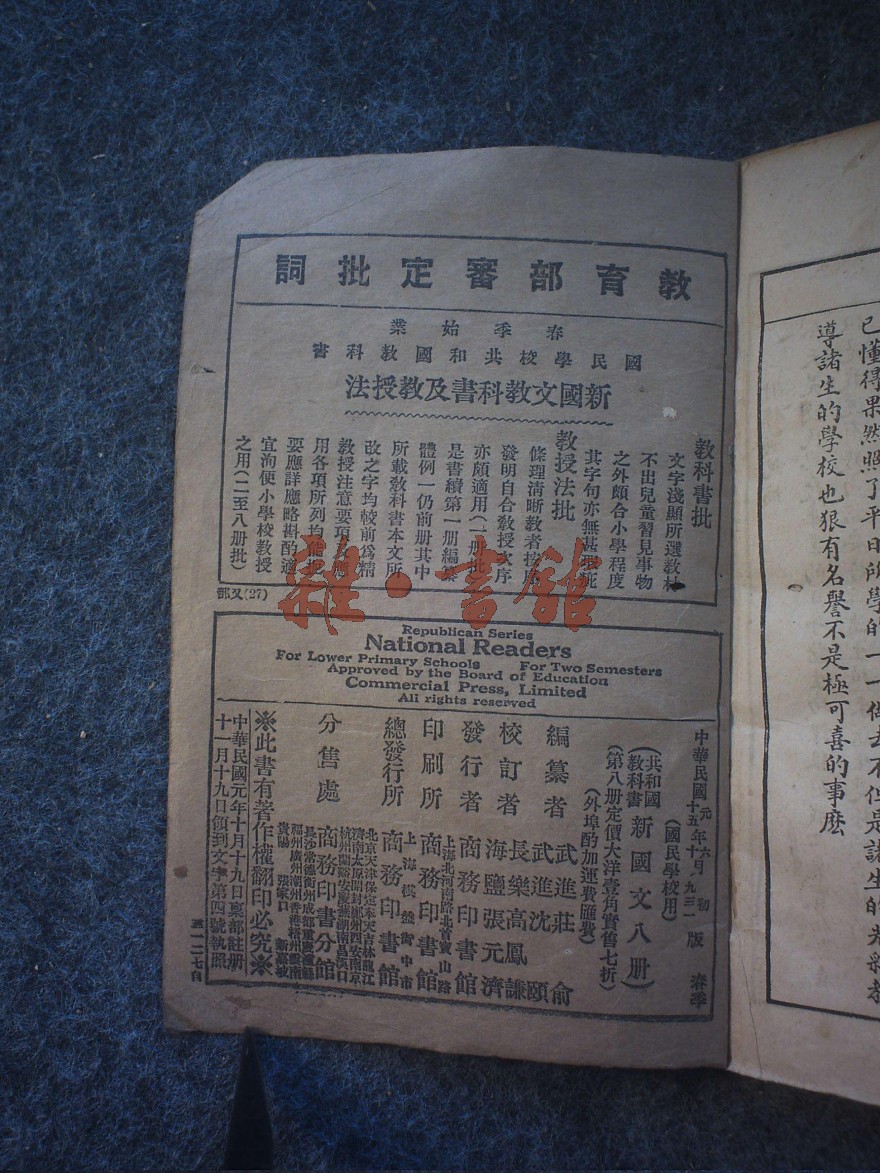 教育部審定批詞
春季始業
國民學校共和國教科書
新國文教科書及教授法
教科書批
文字淺顯所選教材
不出兒童習見事物
之外頗合小學程度
其字句亦無甚
教授法批
條理清晰教者按
發明自合教授次序
亦頗適用(一册批)
是書續第一册編纂
體例一仍前册其中
所載教科書本文所
改之字均較前爲精
教授注意要項
用各項所列均能
要應詳應略斟酌適
宜洵便小學校教授
之用(二至八册批)
部又(27)
雜·書館
Republican Series
National Readers
For Lower Primary Schools For Two Semesters
Approved by the Board of Education
Commercial Press, Limited
All rights reserved
中華民國元年六月初版
十五年十月九三一版
春季
(國民學校用)
(共和國教科書新國文八册)
(第八册定價大洋壹角實售七折)
(外埠酌加運費匯費)
編纂者 武進莊俞
武進沈頤
校訂者 長樂高鳳謙
海鹽張元濟
發行者 商務印書館
印刷所 上海北河南路北首寶山路
商務印書館
總發行所 上海棋盤街中市
商務印書館
分售處 商務印書分館
北京天津保定奉天吉林龍江
濟南太原開封鄭州西安南京
杭州蘭谿安慶蕪湖南昌漢口
長沙常德衡州成都重慶瀘縣
福州廣州潮州香港梧州雲南
貴陽 張家口 新嘉坡
※此書有著作權翻印必究※
中華民國元年十月十九日稟部註册
十一月十九日領到文字第四號執照
五一二七自
已懂得果然照了平日所學的一一做去不但是諸生的光彩教
導諸生的學校也狠有名譽不是極可喜的事麽